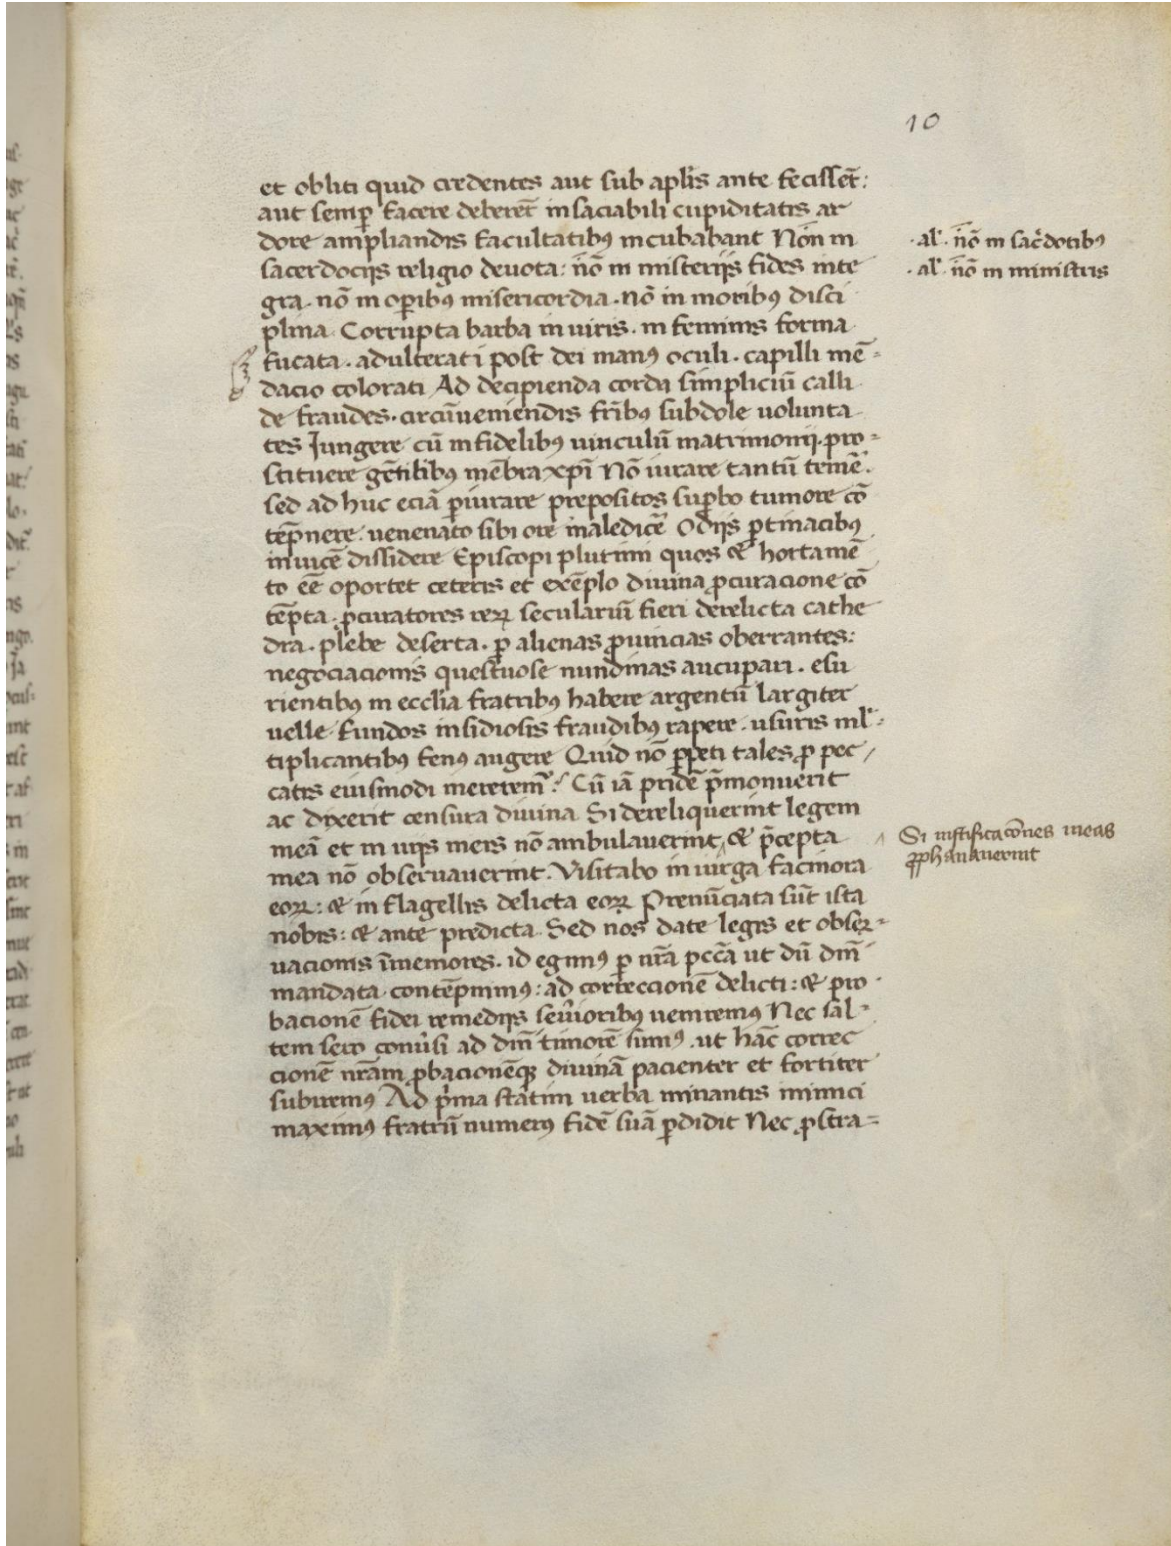 10
et obliti quid credentes aut sub aplīs ante fecissēt:
aut semꝑ facere deberēt insaciabili cupiditatis ar
dore ampliandis facultatibꝰ incubabant Nōn in
sacerdociis religio deuota: nō in misteriis fides inte
gra. nō in oꝑibꝰ misericordia. nō in moribꝰ disci
plina. Corrupta barba in uiris. in feminis forma
fucata. adulterati post dei manꝰ oculi. capilli mē-
dacio colorati Ad decipienda corda simpliciū calli
de fraudes. circūueniendis fr̄ibꝰ subdole uolunta
tes Jungere cū infidelibꝰ uinculū matrimonij. pro-
stituere gētilibꝰ mēbra xp̄i Nō iurare tantū temē.
sed ad huc eciā ꝑiurare prepositos suꝑbo tumore cō
tēpnere. uenenato sibi ore maledicē Odiis ꝑtinacibꝰ
inuicē dissidere Episcopi plurimi quos & hortamē
to ēē oportet ceteris et exēplo diuina ꝓcuracione cō
tēpta. ꝓcuratores reꝝ seculariū fieri derelicta cathe
dra. plebe deserta. ꝑ alienas ꝓuincias oberrantes:
negociacionis questuose nundinas aucupari. esu
rientibꝰ in ecclīa fratribꝰ habere argentū largiter
uelle fundos insidiosis fraudibꝰ rapere. usuris ml̄-
tiplicantibꝰ fenꝰ augere Quid nō ꝑpeti tales ꝓ pec/
catis eiusmodi meremem̄? Cū iā pridē p̄monuerit
ac dixerit censura diuina Si dereliquerint legem
meā et in uiis meis nō ambulauerint, & p̄cepta
mea nō obseruauerint. Visitabo in uirga facinora
eoꝝ: & in flagellis delicta eoꝝ Prenūciata sūt ista
nobis: & ante predicta. Sed nos date legis et obser-
uacionis īmemores. id egimꝰ ꝑ nr̄a pccā ut dū dm̄
mandata contēpnimꝰ: ad correccionē delicti: & pro
bacionē fidei remediis seu̾ioribꝰ ueniremꝰ Nec sal-
tem sero conu̾si ad dm̄ timorē simꝰ. ut hāc correc
cionē nr̄am ꝓbacionēqꝫ diuinā pacienter et fortiter
subiremꝰ Ad p̾ma statim uerba minantis inimici
maximꝰ fratrū numerꝰ fidē suā ꝑdidit Nec ꝓstra-
.al̄. nō in sac̾dotibꝰ
.al̄. nō in ministris
Si iustificacōnes meas
ꝓphanauerint